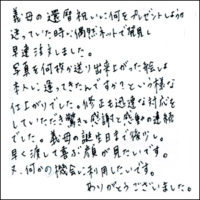 義母の還暦祝いに何をプレゼントしようか
迷っていた時に偶然ネットで発見し
早速注文しました。
写真を何枚か送り出来上がった絵は
本人に違ってきたんですか？という様な
仕上がりでした。修正も迅速な対応を
していただき驚きと感謝と感動の連続
でした。義母の誕生日まで後少し。
早く渡して喜ぶ顔が見たいです。
又、何かの機会に利用したいです。
ありがとうございました。